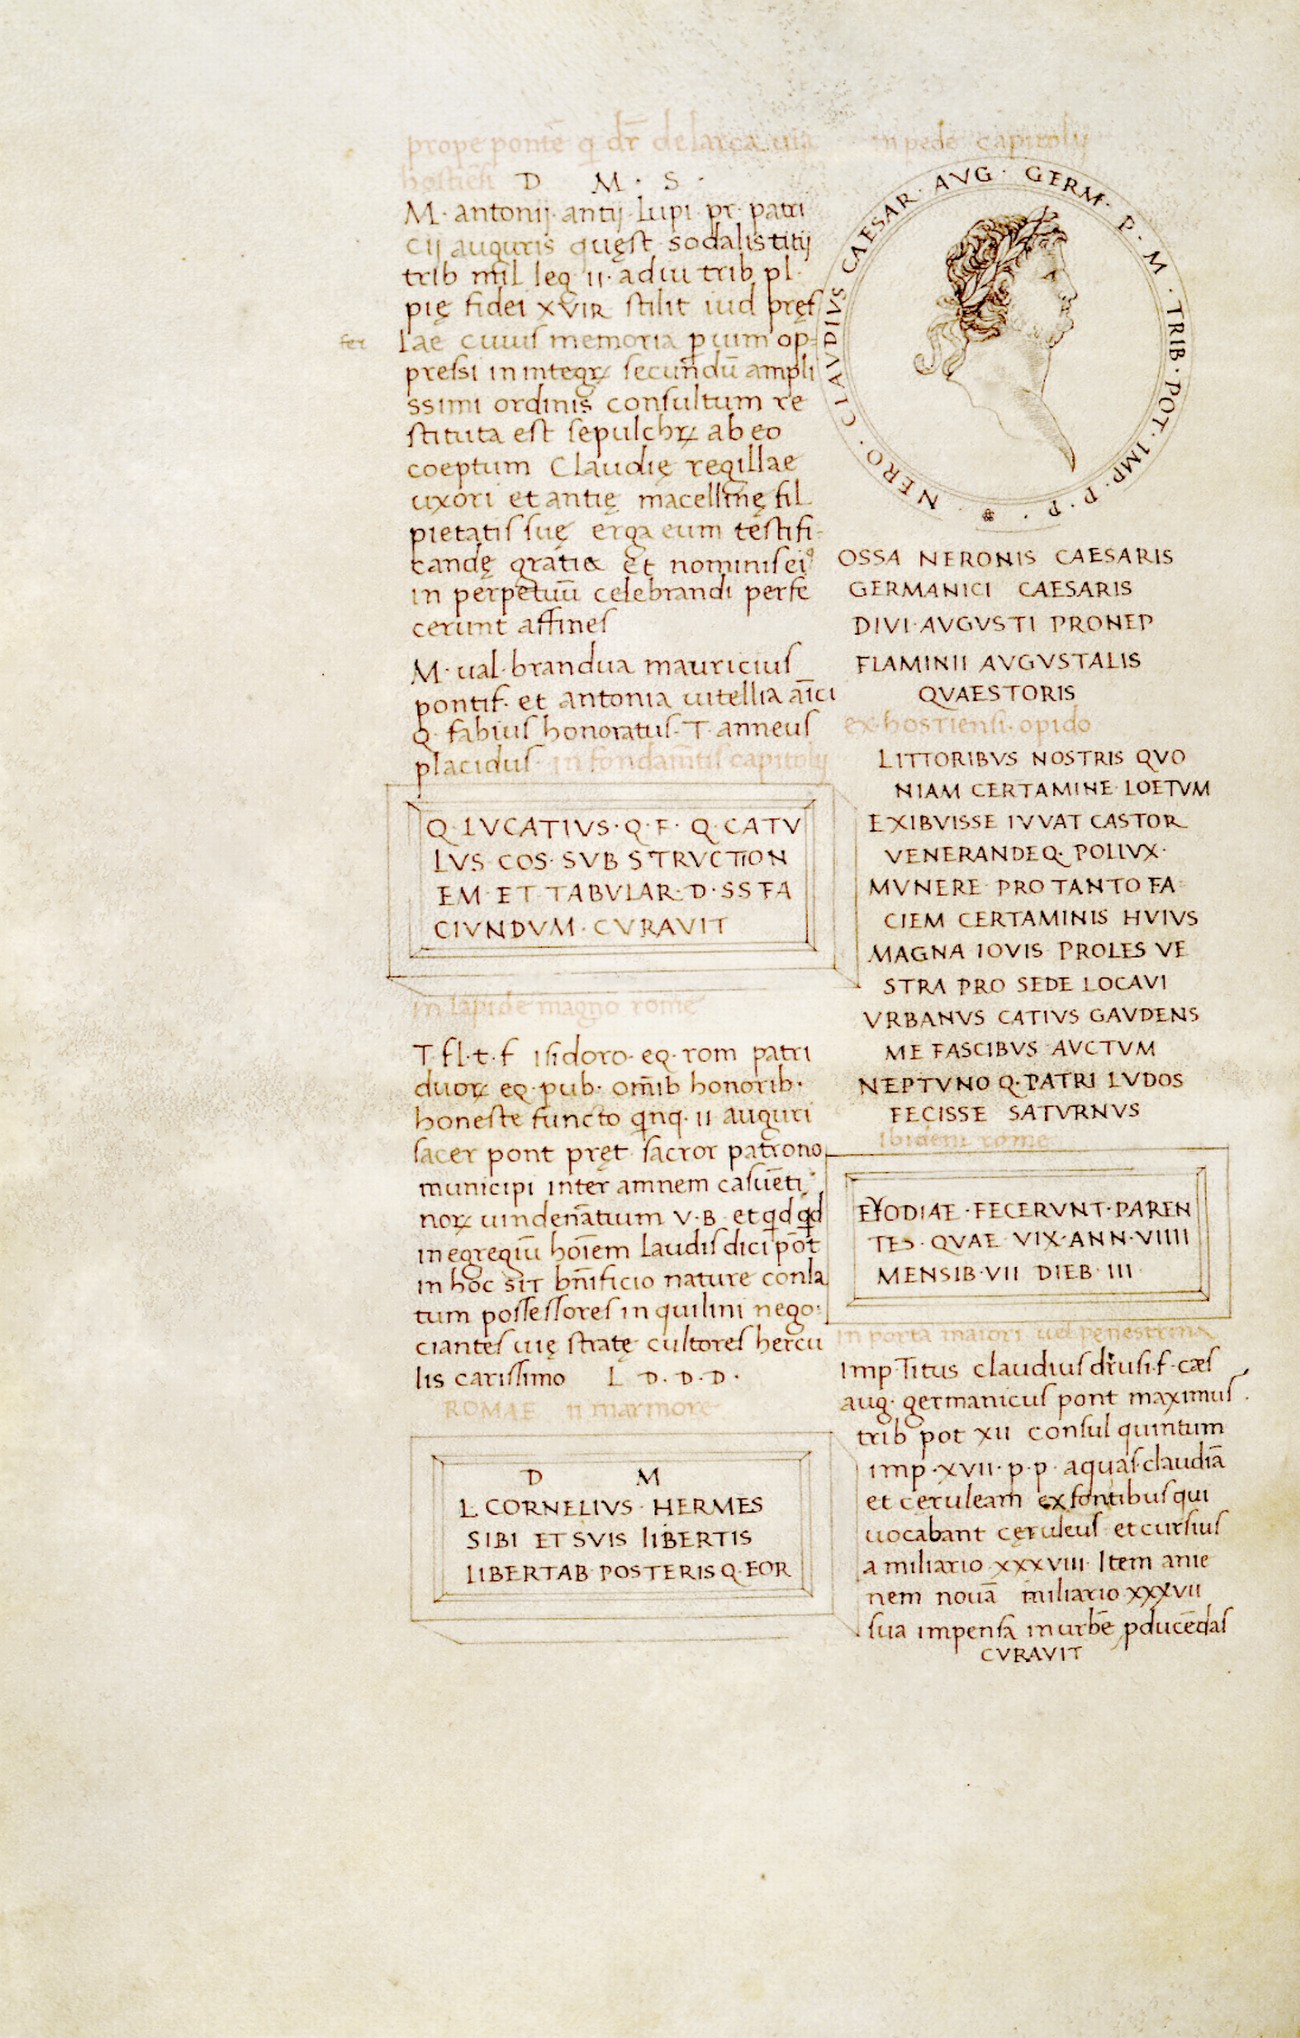 prope pontē q dr̄ de larca uia
hostiēsi
D M · S ·
M · antonij · antij · lupi · pr · patri
cij auguris quęst · sodalis titij
trib mil leg · II · adiu trib pl ·
pię fidei XVIR stilit iud pręf
fer
lae cuius memoria p uim op=
pressi in integrꝝ secundū ampli
ssimi ordinis consultum re
stituta est sepulchrꝝ ab eo
coeptum Claudię regillae
uxori et antię macellinę fil
pietatis suę erga eum testifi-
candę gratia et nominis eiꝰ
in perpetuū celebrandi perfe
cerunt affines
M · ual · brandua mauricius
pontif · et antonia uitellia aīci
Q · fabius honoratus · T · anneus
placidus ·
in fondam̄tis capitolij
Q · LVCATIVS · Q · F · Q · CATV
LVS · COS · SVB STRVCTION
EM · ET TABVLAR · D · SS FA
CIVNDVM · CVRAVIT
in lapide magno rome
T · fl · t · f isidoro · eq · rom patri
duoꝝ eq · pub · om̄ib honorib ·
honeste functo qnq · II auguri
sacer pont pręt sacror patrono
municipi inter amnem casuēti
noꝝ uindenatium V · B · et qd qd
in egregiū hoīem laudis dici pōt
in hoc SIT bn̄ificio nature conla
tum possessores inquilini nego:
ciantes uię stratę cultores hercu
lis carissimo L · D · D · D ·
ROMAE in marmore
D M
L CORNELIVS · HERMES
SIBI ET SVIS lIBERTIS
lIBERTAB POSTERIS Q · EOR
in pede capitolij
NERO · CLAVDIVS CAESAR · AVG · GERM · P · M · TRIB · POT · IMP · P · P ·
OSSA NERONIS CAESARIS
GERMANICI CAESARIS
DIVI · AVGVSTI PRONEP
FLAMINII AVGVSTALIS
QVAESTORIS
ex · hostiensi · opido
LITTORIBVS NOSTRIS QVO
NIAM CERTAMINE LOETVM
EXIBVISSE IVVAT CASTOR
VENERANDEQ · POLlVX ·
MVNERE PRO TANTO FA
CIEM CERTAMINIS HVIVS
MAGNA IOVIS PROLES VE
STRA PRO SEDE LOCAVI
VRBANVS CATIVS GAVDENS
ME FASCIBVS AVCTVM
NEPTVNO Q · PATRI LVDOS
FECISSE SATVRNVS
Ibidem rome
EYODIAE · FECERVNT · PAREN
TES · QVAE VIX · ANN · VIIII
MENSIB · VII DIEB · III
in porta maiori uel penestrina
Imp Titus claudius drusi · f · cæs
aug · germanicus pont maximus
trib pot XII consul quintum
imp · XVII · p · p · aquas claudiā
et ceruleam ex fontibus qui
uocabant cęruleus et cursius
a miliario XXXVIII Item anie
nem nouā miliario XXXVII
sua impensa in urbē pducēdas
CVRAVIT